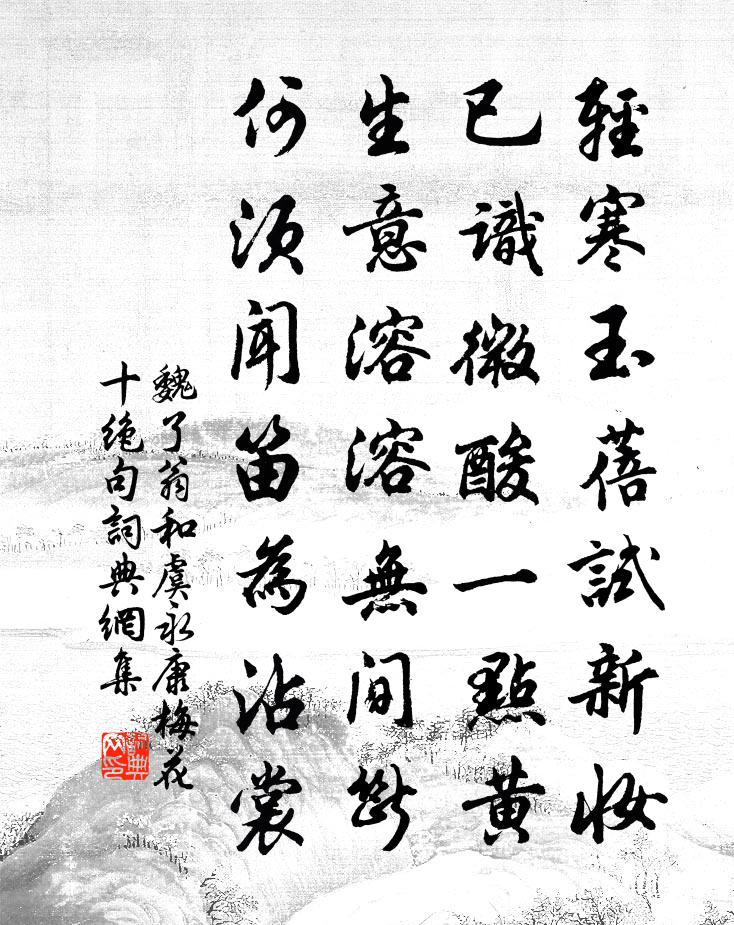 輕寒玉蓓試新妝
已識微酸一點黃
生意溶溶無間斷
何須聞笛為沾裳
魏了翁和虞永康梅花
十絕句詞典網集